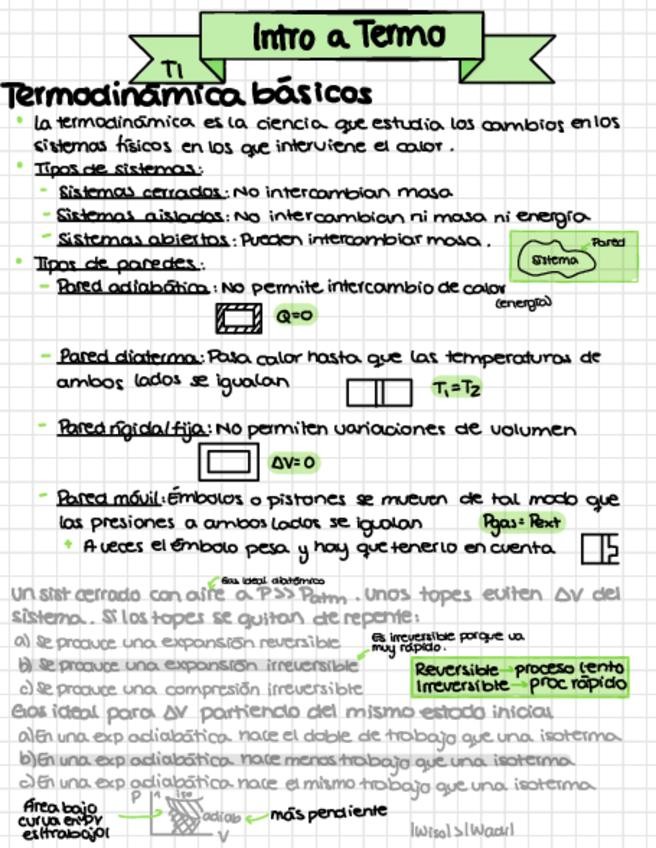 Intro a Termo
T1
Termodinámica básicos
• La termodinámica es la ciencia que estudia los cambios en los
sistemas físicos en los que interviene el calor.
• Tipos de sistemas:
- Sistemas cerrados: No intercambian masa
- Sistemas aislados: No intercambian ni masa ni energía
- Sistemas abiertos: Pueden intercambiar masa.
Pared
Sistema
• Tipos de paredes:
- Pared adiabática: No permite intercambio de calor
(energía)
Q=0
- Pared diaterma: Pasa calor hasta que las temperaturas de
ambos lados se igualan
T₁=T₂
- Pared rígida/fija: No permiten variaciones de volumen
ΔV=0
- Pared móvil: Émbolos o pistones se mueven de tal modo que
las presiones a ambos lados se igualan
Pgas=Pext
+ A veces el émbolo pesa y hay que tenerlo en cuenta
Gas ideal diatómico
Un sist cerrado con aire a P>>Patm. Unos topes eviten ΔV del
sistema. Si los topes se quitan de repente:
a) Se produce una expansión reversible
Es irreversible porque va
muy rápido.
b) Se produce una expansión irreversible
c) Se produce una compresión irreversible
Reversible → proceso lento
Irreversible → proc rápido
Gas ideal para ΔV partiendo del mismo estado inicial
a) En una exp adiabática hace el doble de trabajo que una isoterma
b) En una exp adiabática hace menos trabajo que una isoterma
c) En una exp adiabática hace el mismo trabajo que una isoterma
Área bajo
curva en PV
es |trabajo|
P
iso
adiab
V
más pendiente
|Wiso|>|Wadi|